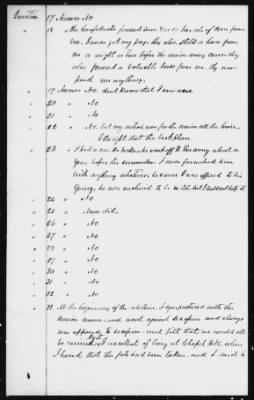 Question 17 Answer No
18 " the Confederates pressed some 30 or 40 barrels of Corn from
me. I never got any pay. they also stole a horse from
me a night or two before the union army came. they
also pressed a valuable horse from me. they never
paid me anything.
19 Answer No. don't know that I ever
20 " No
21 " No
22 " No. but my feelings was for the union all the time.
I thought that the best plan
23 " I had a son who went off to the army about a
year before the surrender. I never furnished him
with anything whatever because I was opposed to his
going, he was inclined to be wild but I could not help it
24 " No
25 " Never did.
26 " No
" No
28 " No
" No
30 " No
31 " No
32 " No
33 " At the beginning of the rebellion I sympathized with the
union cause. and went against secession and always
was opposed to secession. and felt that we would all
be ruined. I recollect of being at Chapel Hill when
I heard that the fort had been taken, and I said to